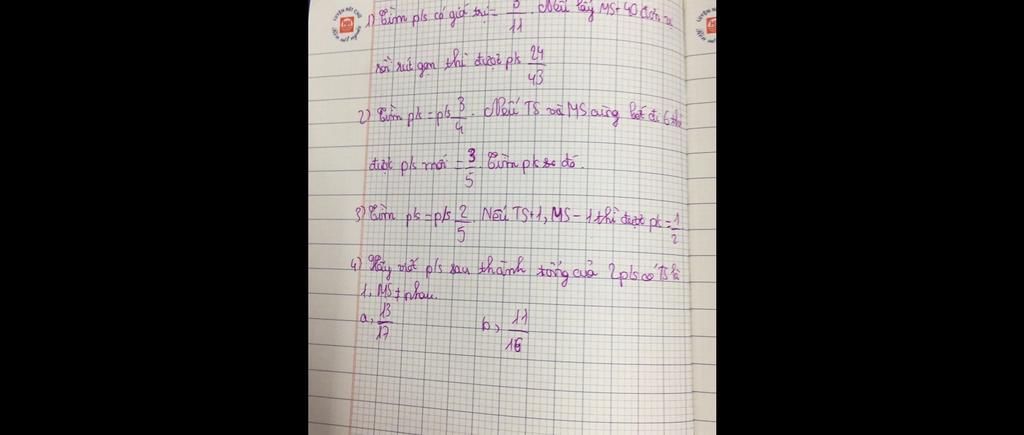 1) Tìm pls có giá trị = /11. Nếu lấy MS + 40 đơn vị
rồi rút gọn thì được pls 24/43
2) Tìm pls = pls 3/4. Nếu TS và MS cùng bớt đi 6 thì
được pls mới = 3/5. Tìm pls đó.
3) Tìm pls = pls 2/5. Nếu TS + 1, MS - 1 thì được pls = 1/2
4) Hãy viết pls sau thành tổng của 2 pls có TS là
1, MS ≠ nhau.
a, 13/17 b, 11/16